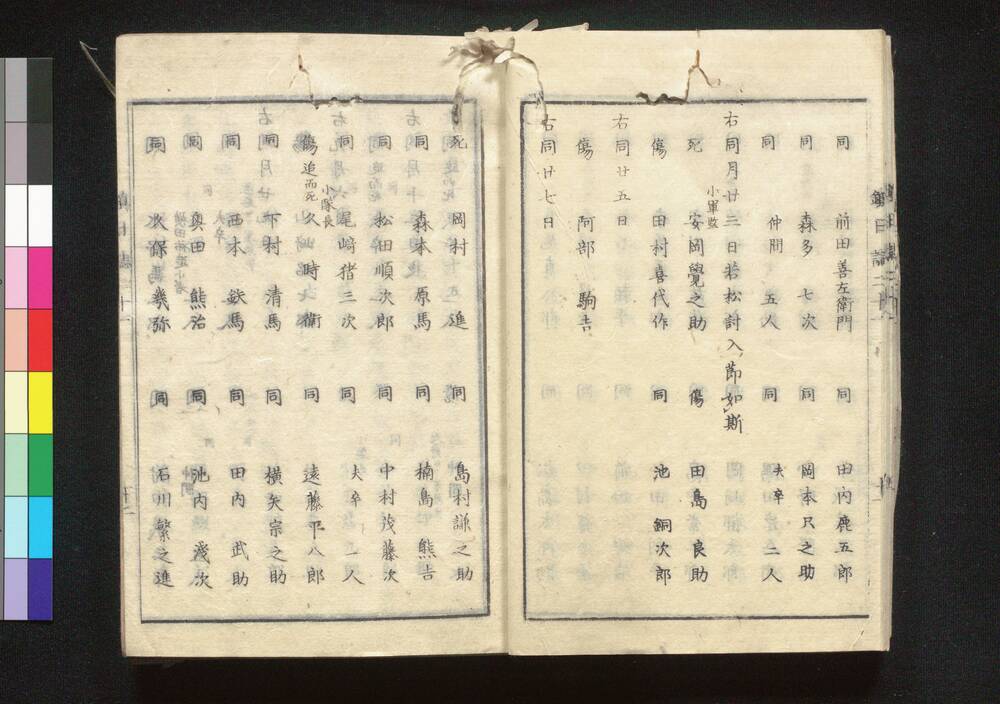 同　前田善左衛門　同　田内鹿五郎
同　森多　七次　同　岡本只之助
同　仲間　五人　同　夫卒　二人
右同月廿三日若松討入節如斯
死　小軍監　安岡覺之助　傷　田島　良助
傷　田村喜代作　同　池　銅次郎
右同廿五日
傷　阿部　駒吉
右同廿七日
死　岡村　五進　同　島村謙之助
同　森本　原馬　同　楠島　熊吉
同　松田順次郎　同　中村茂藤次
同　小隊長　尾﨑猪三次　同　夫卒　一人
傷　追而死　久　時衛　同　遠藤平八郎
同　下村　清馬　同　横矢宗之助
同　西本　鉄馬　同　田内　武助
同　奥田　熊治　同　池内　茂次
同　久保　弥　同　石川繁之進